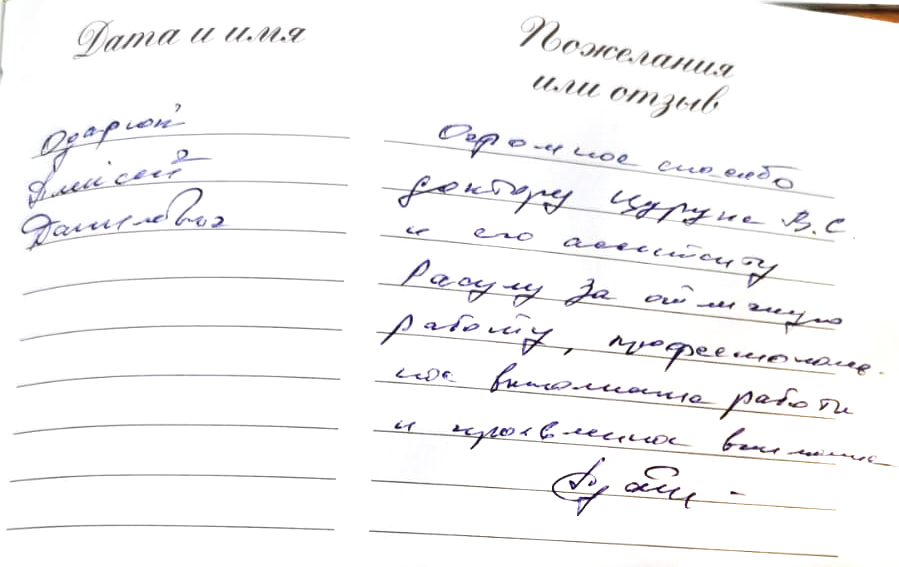 Дата и имя
Пожелания
или отзыв
Алексей
Данилович
Огромное спасибо
доктору Цуруне В.С.
и его ассистенту
Расулу за отличную
работу, профессиональ-
ное выполнение работы
и проявленное внимание